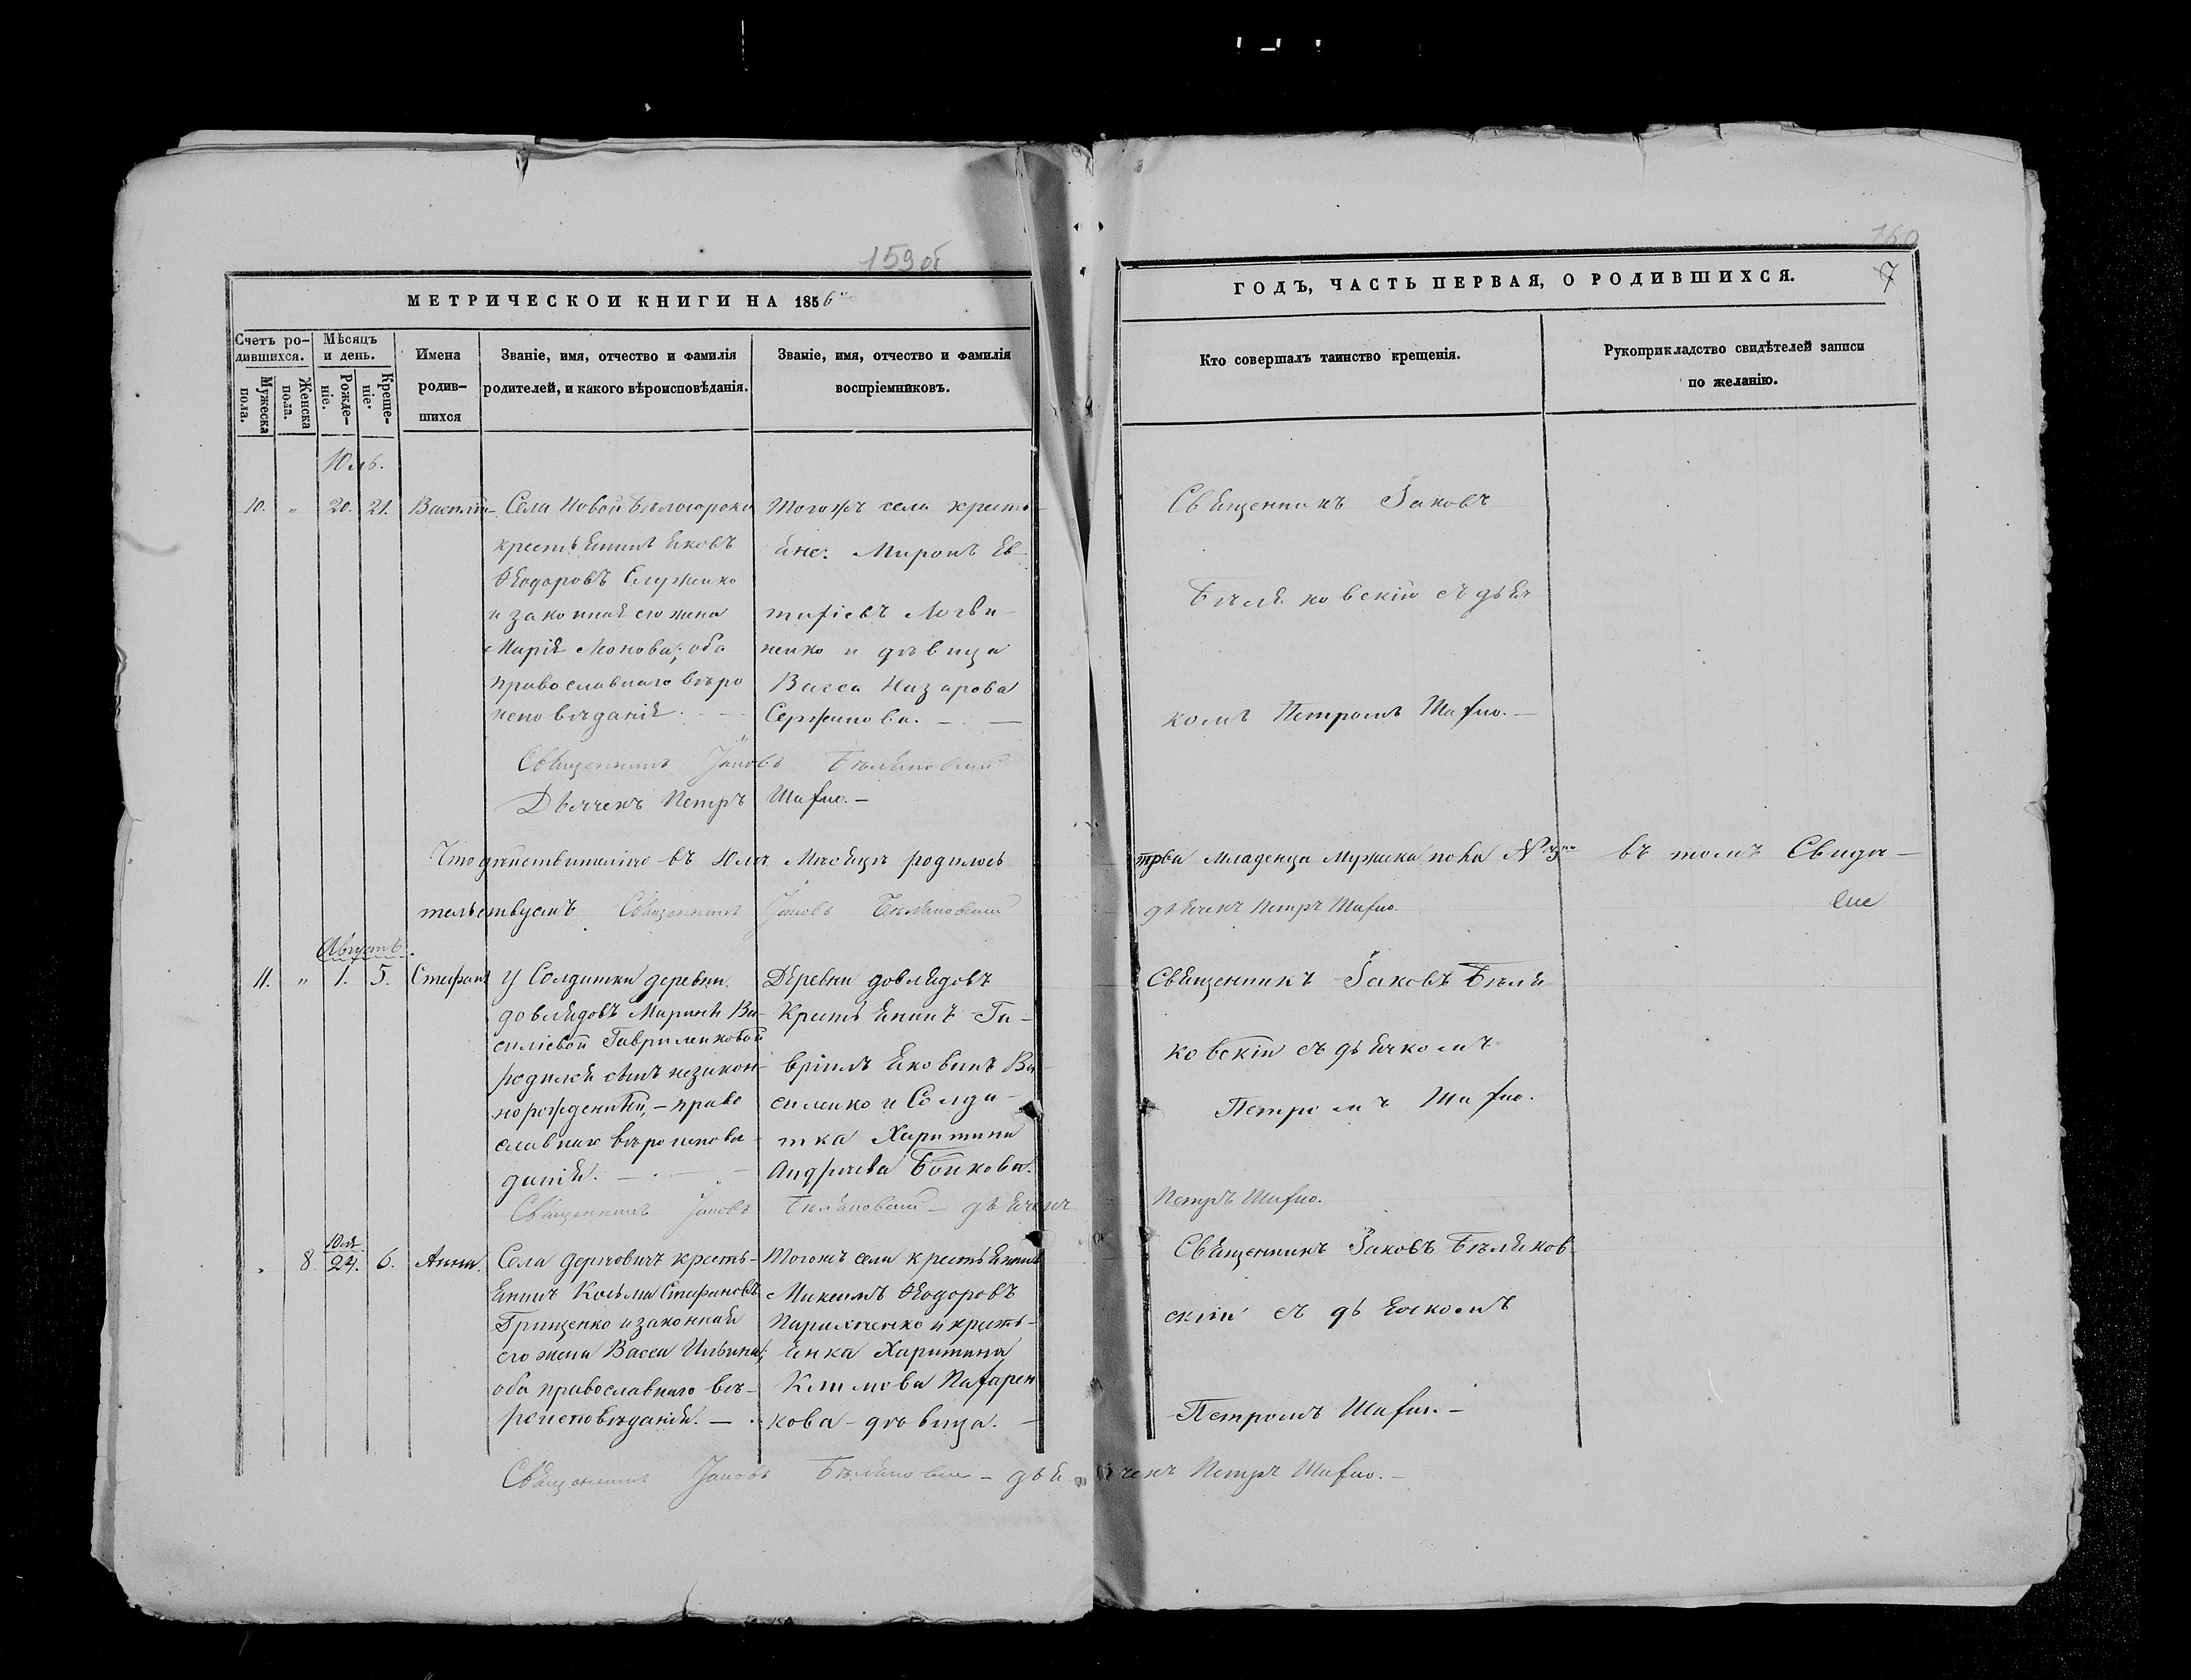 159об
МЕТРИЧЕСКОЙ КНИГИ НА 1856
Счетъ родившихся.
Мужеска пола.
Женска пола.
Мѣсяцъ и день.
Рожденіе.
Крещеніе.
Имена родившихся
Званіе, имя, отчество и фамилія
родителей, и какого вѣроисповѣданія.
Званіе, имя, отчество и фамилія
воспріемниковъ.
Юль.
10. " 20. 21. Василій
Села Новой
крестьянинъ Яковъ
Ѳеодоровъ
и законная его жена
Марія ; оба
православнаго вѣро
исповѣданія.
Тогожъ села кресть
яне: Миронъ Ев
тихіевъ Логви
ненко и дѣвица
Васса Назарова
Священникъ Іаковъ Бѣляковскій
Дьячекъ Петръ
Что дѣйствительно въ Юлѣ Мѣсяцѣ родилось
тельствуемъ Священникъ Іаковъ Бѣляковскій
Августъ.
11. " 1. 5. Стефанъ
У Солдатки деревни
довлядовъ Марины Ва
силіевой Гавриленковой
родился сынъ незакон
норожденный, – право
славнаго вѣроисповѣ
данія.
Деревни довлядовъ
Крестьянинъ Га
вріилъ Яковинъ Ва
силенко и Солда
тка Харитина
Андреева Бойкова.
Священникъ Іаковъ Бѣляковскій – дьячекъ
Юля
8. 24. 6. Анна.
Села кресть
янинъ Косьма Стефановъ
Грищенко и законная
его жена Васса Ильина;
оба православнаго вѣ
роисповѣданія. –
Тогожъ села крестьянинъ
Максимъ Ѳеодоровъ
и кресть
янка Харитина
Климова
кова – дѣвица. –
Священникъ Іаковъ Бѣляковскій – дья
160
ГОДЪ, ЧАСТЬ ПЕРВАЯ, О РОДИВШИХСЯ.
7
Кто совершалъ таинство крещенія.
Рукоприкладство свидѣтелей записи
по желанію.
Священникъ Іаковъ
Бѣляковскій съ дьяч
комъ Петромъ
Младенца Мужска пола въ томъ Свидѣ
дьячекъ Петръ
Священникъ Іаковъ Бѣля
ковскій съ дьячкомъ
Петромъ
Петръ
Священникъ Іаковъ Бѣляков
скій съ дьячкомъ
Петромъ
чекъ Петръ